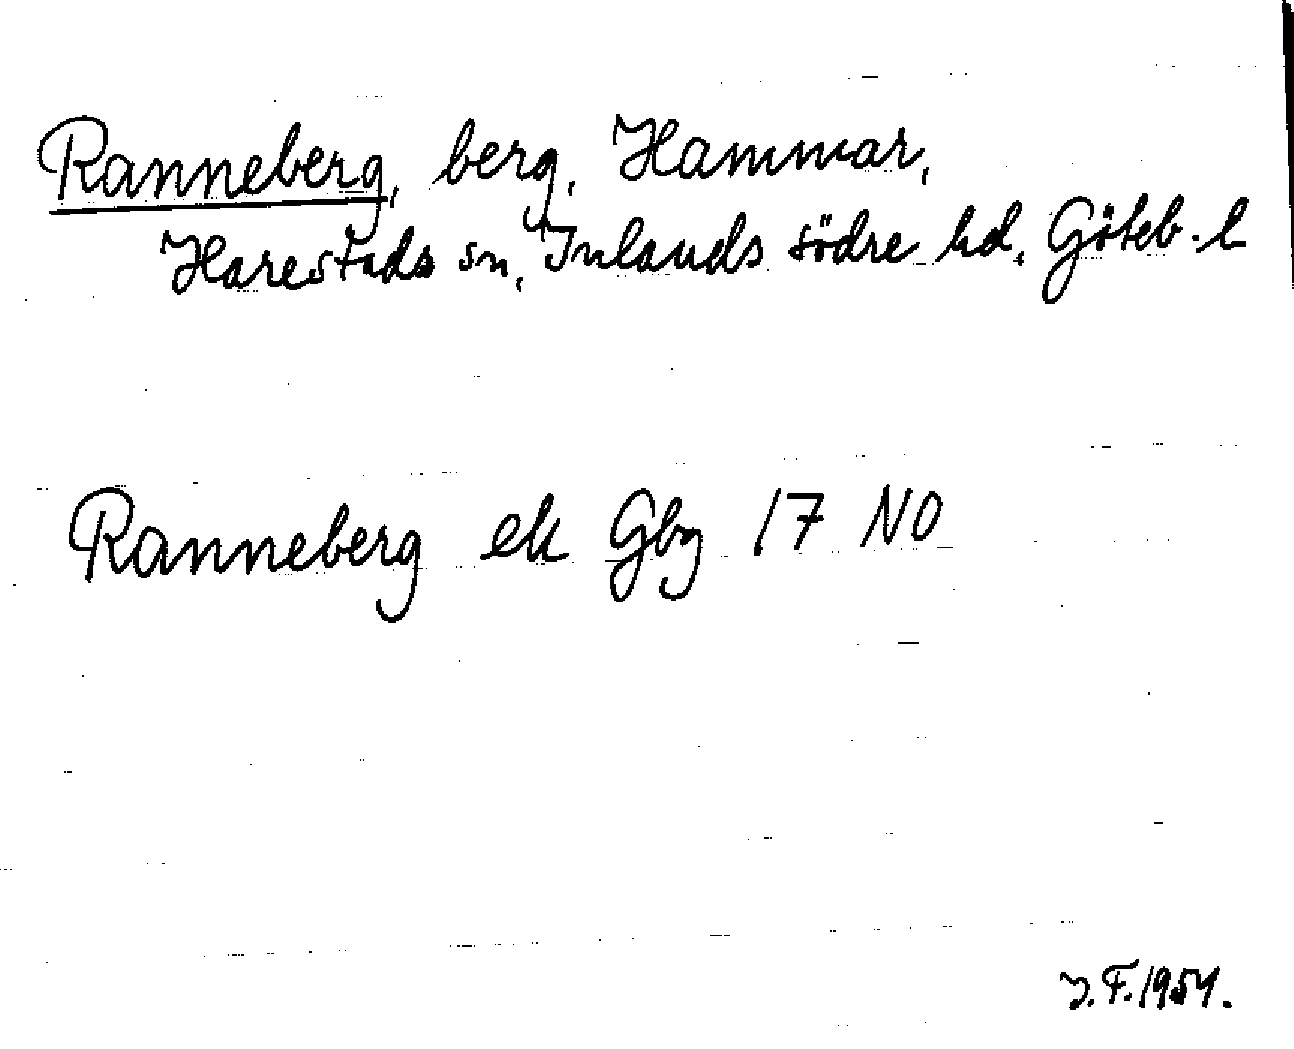 Ranneberg, berg, Hammar,
Harestads sn, Inlands södre hd, Göteb. l
Ranneberg ek Gbg 17 NO
J. F. 1954.